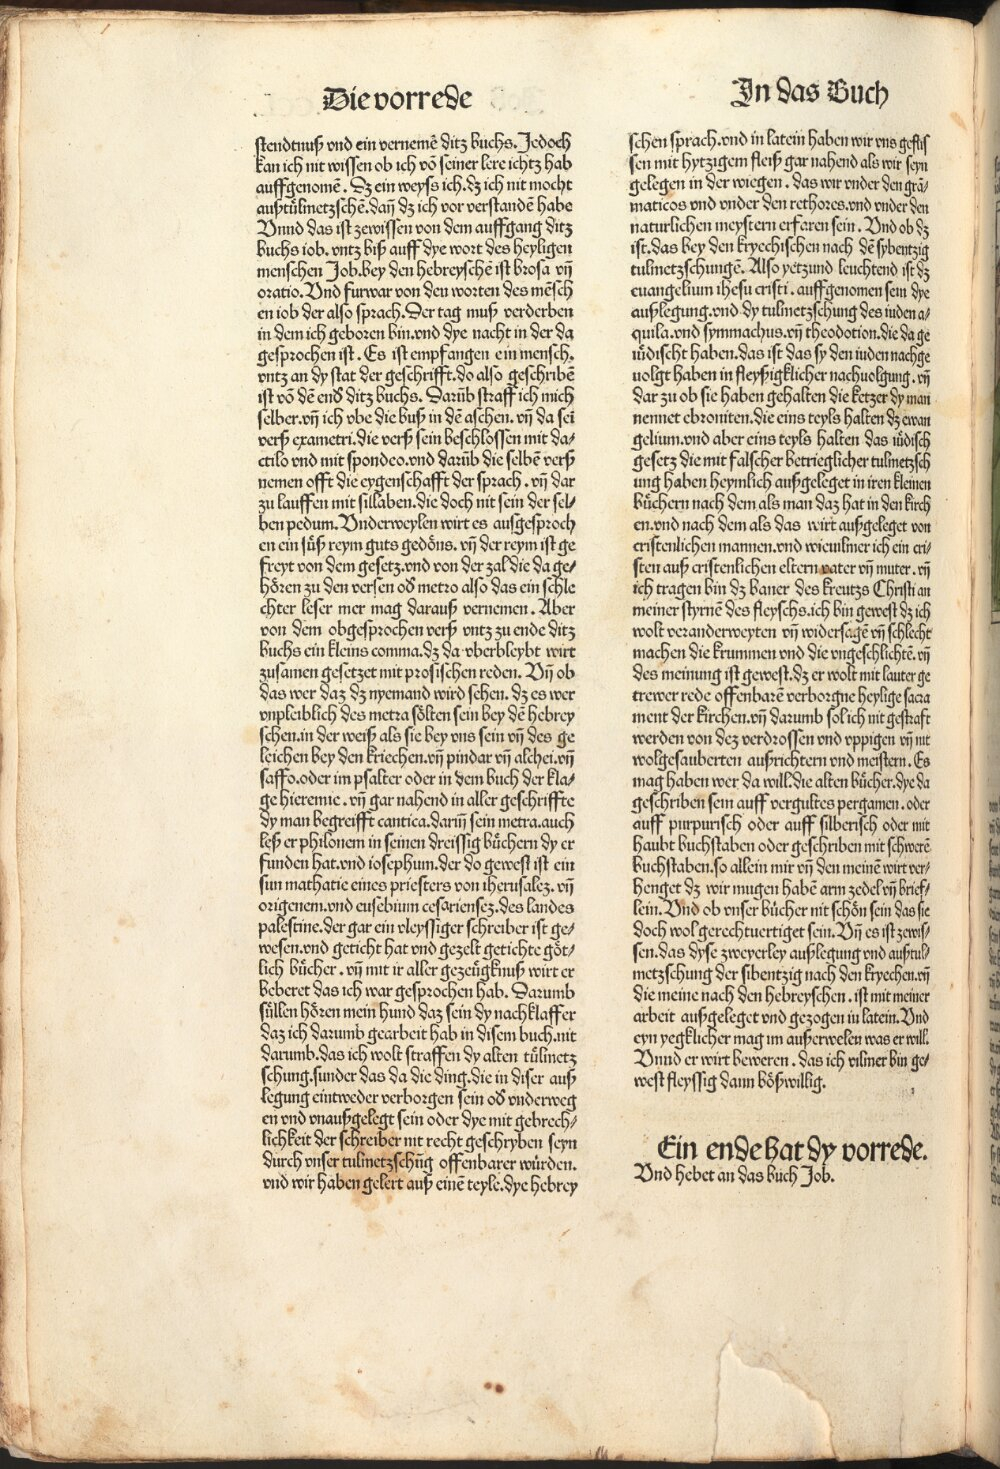 Die vorrede
stendtnuß vnd ein vernemē ditz buchs. Jedoch
kan ich nit wissen ob ich vō seiner lere ichtz hab
auffgenomē. Dz ein weyss ich. dz ich nit mocht
außtúlmetzschē. dañ dz ich vor verstandē habe
Vnnd das ist zewissen von dem auffgang ditz
buchs iob. vntz biß auff dye wort des heyligen
menschen Job. bey den hebreyschē ist brosa vñ
oratio. Vnd furwar von den worten des mēsch
en iob der also sprach. Der tag muß verderben
in dem ich geboren bin. vnd dye nacht in der da
gesprochen ist. Es ist empfangen ein mensch.
vntz an dy stat der geschrifft. do also geschribē
ist vō dē end ditz buchs. Darūb straff ich mich
selber. vñ ich vbe die buß in dē aschen. vñ da sei
verß exametri. die verß sein beschlossen mit da⸗
ctilo vnd mit spondeo. vnd darūb die selbē verß
nemen offt die eygenschafft der sprach. vñ dar
zu lauffen mit sillaben. die doch nit sein der sel⸗
ben pedum. Vnderweylen wirt es ausgesproch
en ein süß reym guts gedöns. vñ der reym ist ge
freyt von dem gesetz. vnd von der zal die da ge⸗
hören zu den versen od metro also das ein schle
chter leser mer mag darauß vernemen. Aber
von dem obgesprochen verß vntz zu ende ditz
buchs ein kleins comma. dz da vberbleybt wirt
zusamen gesetzet mit prosischen reden. Vñ ob
das wer daz dz nyemand wird sehen. dz es wer
vnpleiblich des metra sölten sein bey dē hebrey
schen. in der weiß als sie bey vns sein vñ des ge
leichen bey den kriechen. vñ pindar vñ alchei. vñ
saffo. oder im psalter oder in dem buch der kla⸗
ge hieremie. vñ gar nahend in aller geschriffte
dy man begreifft cantica. dariñ sein metra. auch
leß er philonem in seinen dreissig büchern dy er
funden hat. vnd iosephum. der do gewest ist ein
sun mathatie eines priesters von iherusalez. vñ
origenem. vnd eusebium cesariensez. des landes
palestine. der gar ein vleyssiger schreiber ist ge⸗
wesen. vnd geticht hat vnd gezelt getichte göt⸗
lich bücher. vñ mit ir aller gezeügknuß wirt er
beberet das ich war gesprochen hab. Darumb
süllen hören mein hund daz sein dy nachklaffer
daz ich darumb gearbeit hab in disem buch. nit
darumb. das ich wolt straffen dy alten tülmetz
schung. sunder das da die ding. die in diser auß
legung eintweder verborgen sein od vnderweg
en vnd vnaußgelegt sein oder dye mit gebrech⸗
lichkeit der schreiber nit recht geschryben seyn
durch vnser tulmetzschūg offenbarer würden.
vnd wir haben gelert auß einē teyle. dye hebrey
In das Buch
schen sprach. vnd in latein haben wir vns gefliß
sen mit hytzigem fleiß gar nahend als wir seyn
gelegen in der wiegen. das wir vnder den grā⸗
maticos vnd vnder den rethores. vnd vnder den
naturlichen meystern erfaren sein. Vnd ob dz
ist. das bey den kryechischen nach dē sybentzig
tulmetzschungē. Also yetzund leuchtend ist dz
euangelium ihesu cristi. auffgenomen sein dye
außlegung. vnd dy tulmetzschung des iuden a⸗
quila. vnd symmachus. vñ theodotion. die da ge
iüdischt haben. das ist das sy den iuden nachge
uolgt haben in fleyßigklicher nachuolgung. vñ
dar zu ob sie haben gehalten die ketzer dy man
nennet ebroniten. die eins teyls halten dz ewan
gelium. vnd aber eins teyls halten das iüdisch
gesetz die mit falscher betrieglicher tulmetzsch
ung haben heymlich außgeleget in iren kleinen
büchern nach dem als man daz hat in den kirch
en. vnd nach dem als das wirt außgeleget von
cristenlichen mannen. vnd wieuilmer ich ein cri⸗
sten auß cristenlichen eltern vater vñ muter. vñ
ich tragen bin dz baner des kreutzs Christi an
meiner styrnē des fleyschs. ich bin gewest dz ich
wolt veranderweyten vñ widersagē vñ schlecht
machen die krummen vnd die vngeschlichtē. vñ
des meinung ist gewest. dz er wolt mit lauter ge
trewer rede offenbarē verborgne heylige sacra
ment der kirchen. vñ darumb sol ich nit gestraft
werden von dez verdrossen vnd vppigen vñ nit
wolgesauberten außrichtern vnd meistern. Es
mag haben wer da will. die alten bücher. dye da
geschriben sein auff vergultes pergamen. oder
auff purpurisch oder auff silberisch oder mit
haubt buchstaben oder geschriben mit schwerē
buchstaben. so allein mir vñ den meinē wirt ver⸗
henget dz wir mugen habē arm zedel vñ brief⸗
lein. Vnd ob vnser bücher nit schön sein das sie
doch wol gerechtuertiget sein. Vñ es ist zewis⸗
sen. das dyse zweyerley außlegung vnd außtul⸗
metzschung der sibentzig nach den kryechen. vñ
die meine nach den hebreyschen. ist mit meiner
arbeit außgeleget vnd gezogen in latein. Vnd
eyn yegklicher mag im außerwelen was er will.
Vnnd er wirt beweren. das ich vilmer bin ge⸗
west fleyssig dann bößwillig.
Ein ende hat dy vorrede.
Vnd hebet an das buch Job.